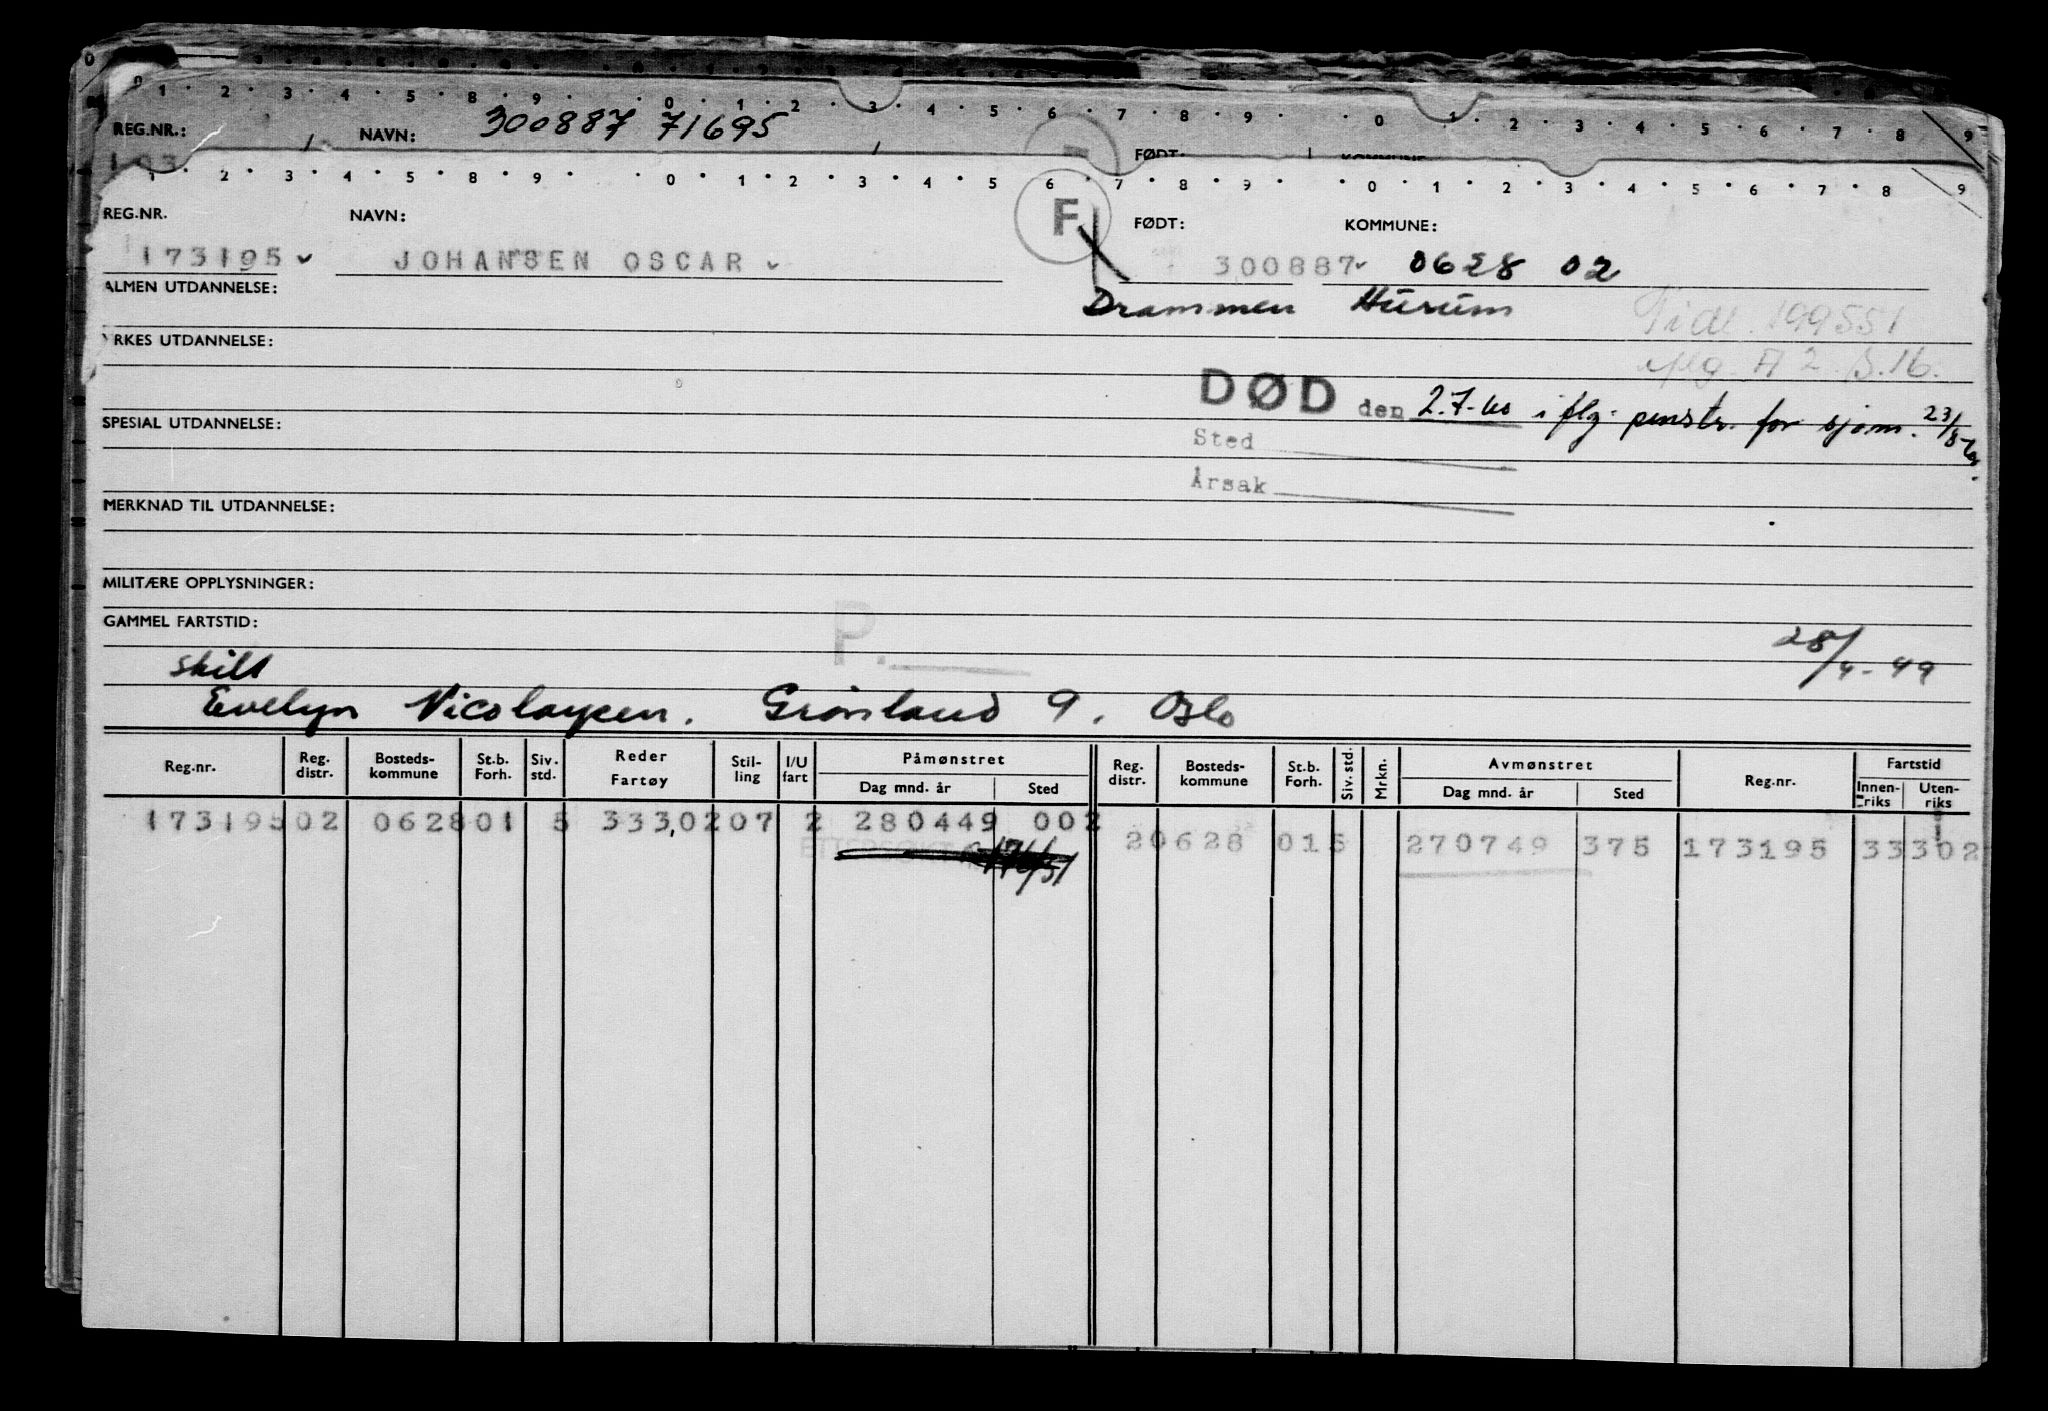 1 2 3 4 5 8 9 0 1 2 3 4 5 6 7 8 9 0 1 2 3 4 5 6 7 8 9
REG.NR.: NAVN: 300887 71695 FØDT:
1 2 3 4 5 8 9 0 1 2 3 4 5 6 7 8 9 0 1 2 3 4 5 6 7 8 9
REG.NR. NAVN: F FØDT: KOMMUNE:
173195 JOHANSEN OSCAR 300887 0628 02
ALMEN UTDANNELSE: Drammen Hurum
Tidl. 199551
YRKES UTDANNELSE:
A 2 S.16.
DØD den 2.7.60 i flg. penstr. for sjøm. 23/8-60
SPESIAL UTDANNELSE: Sted
Årsak
MERKNAD TIL UTDANNELSE:
MILITÆRE OPPLYSNINGER:
GAMMEL FARTSTID: P. 28/4-49
skilt
Evelyn Nicolaysen. Grønland 9. Oslo
Reg.nr. Reg. distr. Bosteds-kommune St.b. Forh. Siv. std. Reder Fartøy Stil-ling I/U fart Påmønstret Reg. distr. Bosteds-kommune St.b. Forh. Siv. std. Mrkn. Avmønstret Reg.nr. Fartstid
Dag mnd. år Sted Dag mnd. år Sted Innen-riks Uten-riks
173195 02 0628 01 5 333,02 07 2 280449 002
2 0628 01 5 270749 375 173195 33302